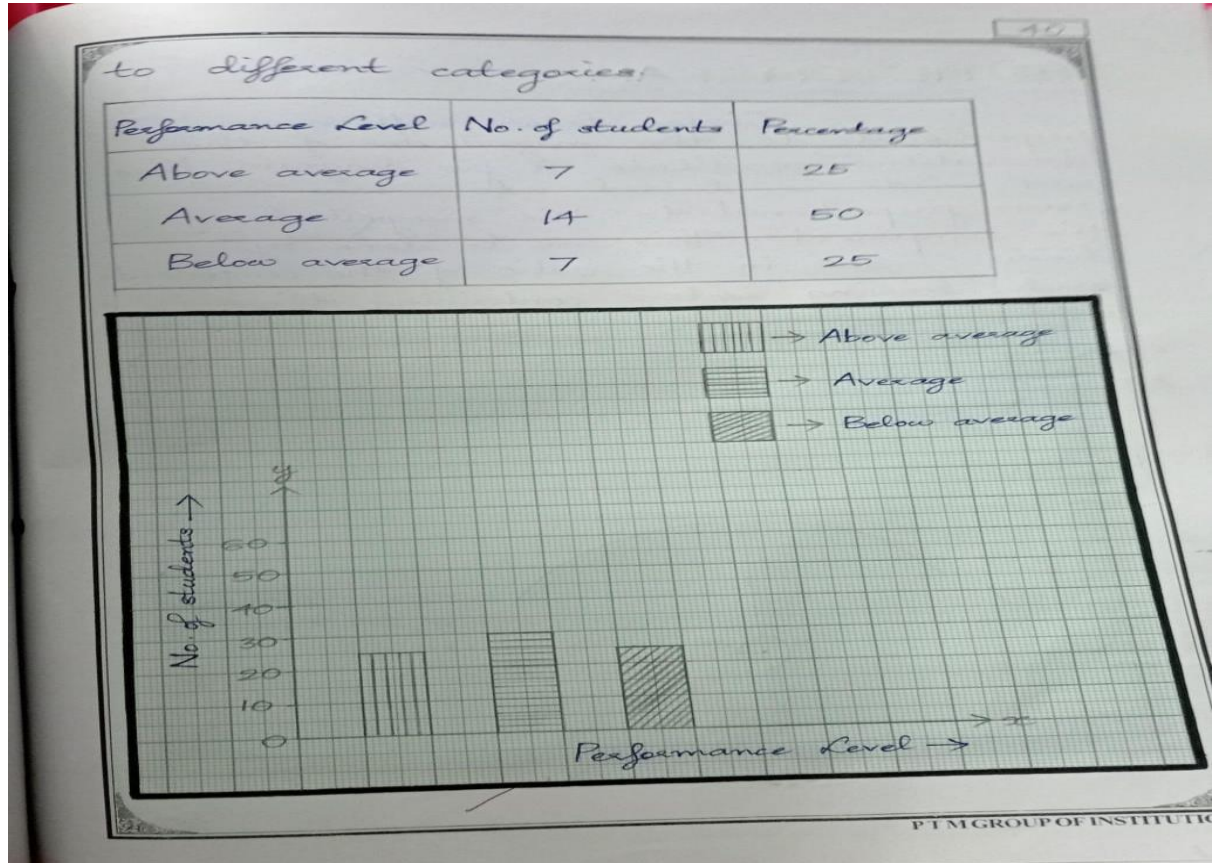 40
to different categories:
Performance Level No. of students Percentage
Above average 7 25
Average 14 50
Below average 7 25
→ Above average
→ Average
→ Below average
y
No. of students →
60
50
40
30
20
10
0
x
Performance Level →
P T M GROUP OF INSTITUTIO